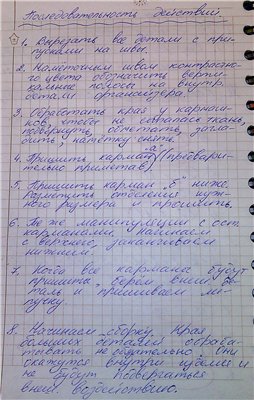 Последовательность действий.
1. Вырезать все детали с при-
пусками на швы.
2. Наметочным швом контрастно-
го цвета обозначить верти-
кальные полосы на внутр.
детали органайзера.
3. Обработать края у карман-
ков, чтобы не сыпалась ткань,
подвернуть, обметать, загла-
дить, намётку снять.
4. Пришить карман "а" (предвари-
тельно приметав).
5. Пришить карман "б" ниже.
Разметить отделения нуж-
ного размера, прошить.
6. Те же манипуляции с ост.
карманами. Начинаем
с верхнего, заканчиваем
нижним.
7. Когда все кармана будут
пришиты, берём внеш. де-
таль и пришиваем ли-
пучку.
8. Начинаем сборку. Края
больших деталей обраба-
тывать не обязательно. Они
окажутся внутри изделия и
не будут подвергаться
внеш. воздействию.